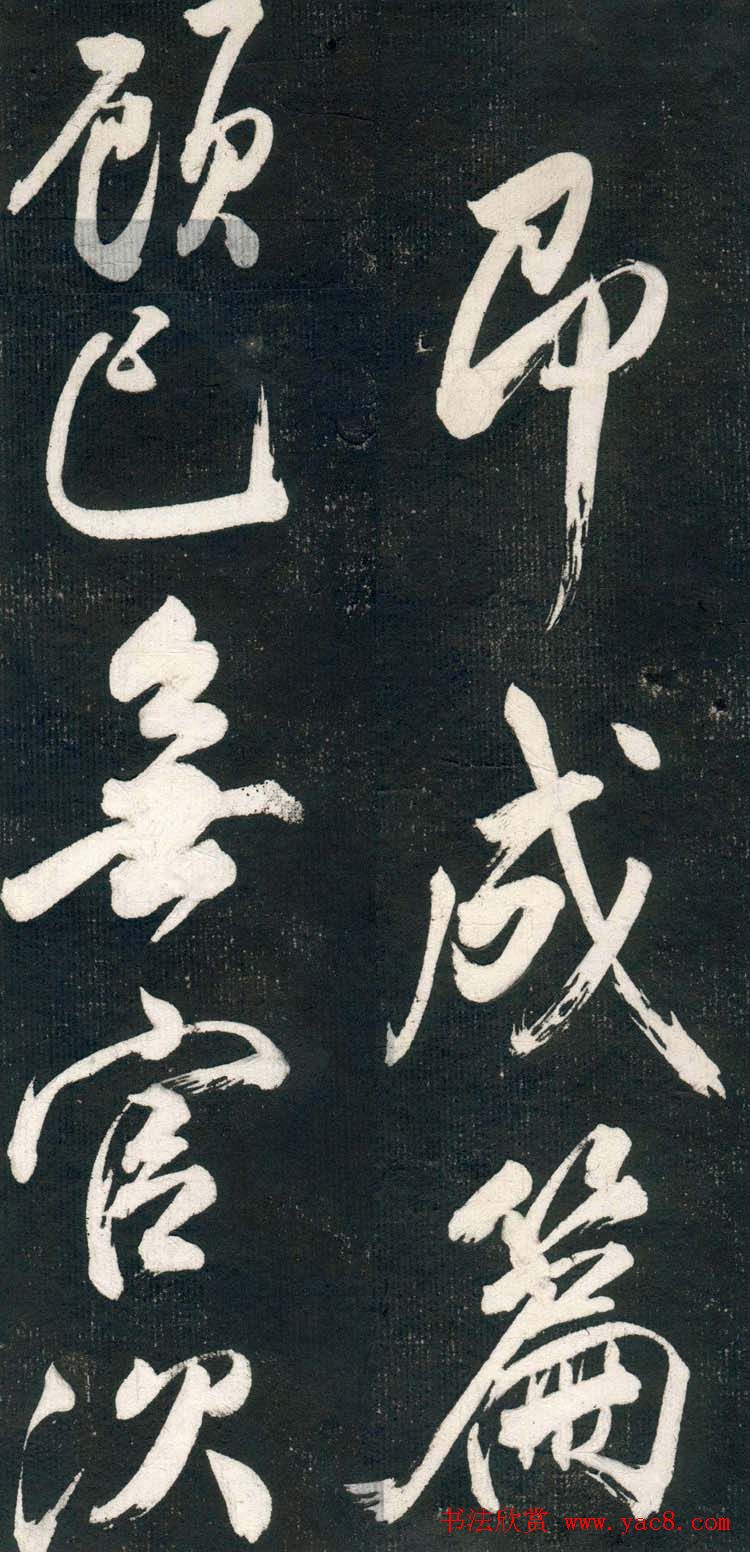 即成篇
顧己無官次
书法欣赏 www.yac8.com